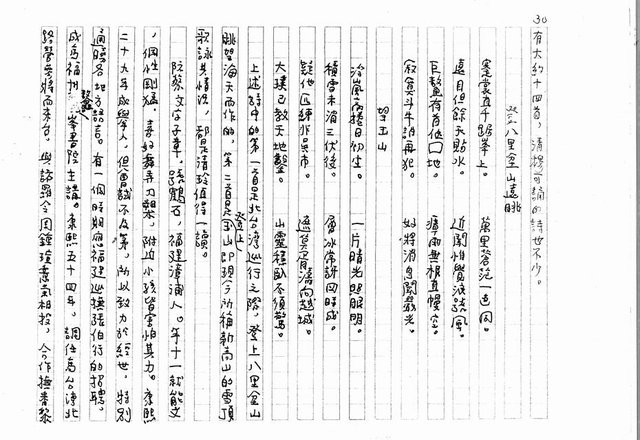 30
有大約十四首，清楊可誦的詩也不少。
登八里坌山遠眺
蹇裳直千踞峯上。 萬里蒼茫一色同。
遠目但餘天貼水。 近聞怕覺浪號風。
巨鰲有首低地。 瘴雨無根直幔空。
敘賀斗牛誰再犯。 好將消息問嚴光。
望玉山
冷嵐高擁日初生。 一片晴光照眼明。
積雪未消三伏後。 層冰常訝四時成。
疑他匹練非吳市。 遮莫有橋向越城。
大璞已教天地鑿。 山靈穩臥不須驚。
上述詩中的第一首是北台灣巡行之際，登上八里坌山
眺望海天而作的，第二首是登上玉山即現今所稱新高山的雪頂
歌詠其情況，都是清玲值得一讀。
阮蔡文字子章，號鶴石，福建漳浦人。年十一就能文
，個性剛猛，喜好舞弄刀槊，附近小孩皆害怕其力。康熙
二十九年成舉人，但會試不及第，所以致力於經世，特別
通曉各地方語言。有一個時期應福建巡撫張伯行的招聘，
成為福州鰲峯書院主講。康熙五十四年，調任為台灣北
路營參將而來台，與諸羅令周鍾瑄意氣相投，合作撫番黎